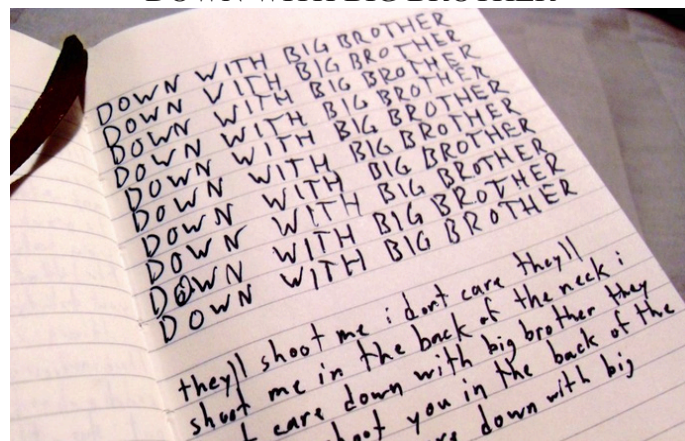 DOWN WITH BIG BROTHER
DOWN WITH BIG BROTHER
DOWN VITH BIG BROTHER
DOWN WITH BIG BROTHER
DOWN WITH BIG BROTHER
DOWN WITH BIG BROTHER
DOWN WITH BIG BROTHER
DOWN WITH BIG BROTHER
DOWN WITH BIG BROTHER
DOWN WITH BIG BROTHER
DOWN WITH BIG BROTHER
they'll shoot me i dont care they'll
shoot me in the back of the neck i
care down with big brother they
shoot you in the back of the
down with big